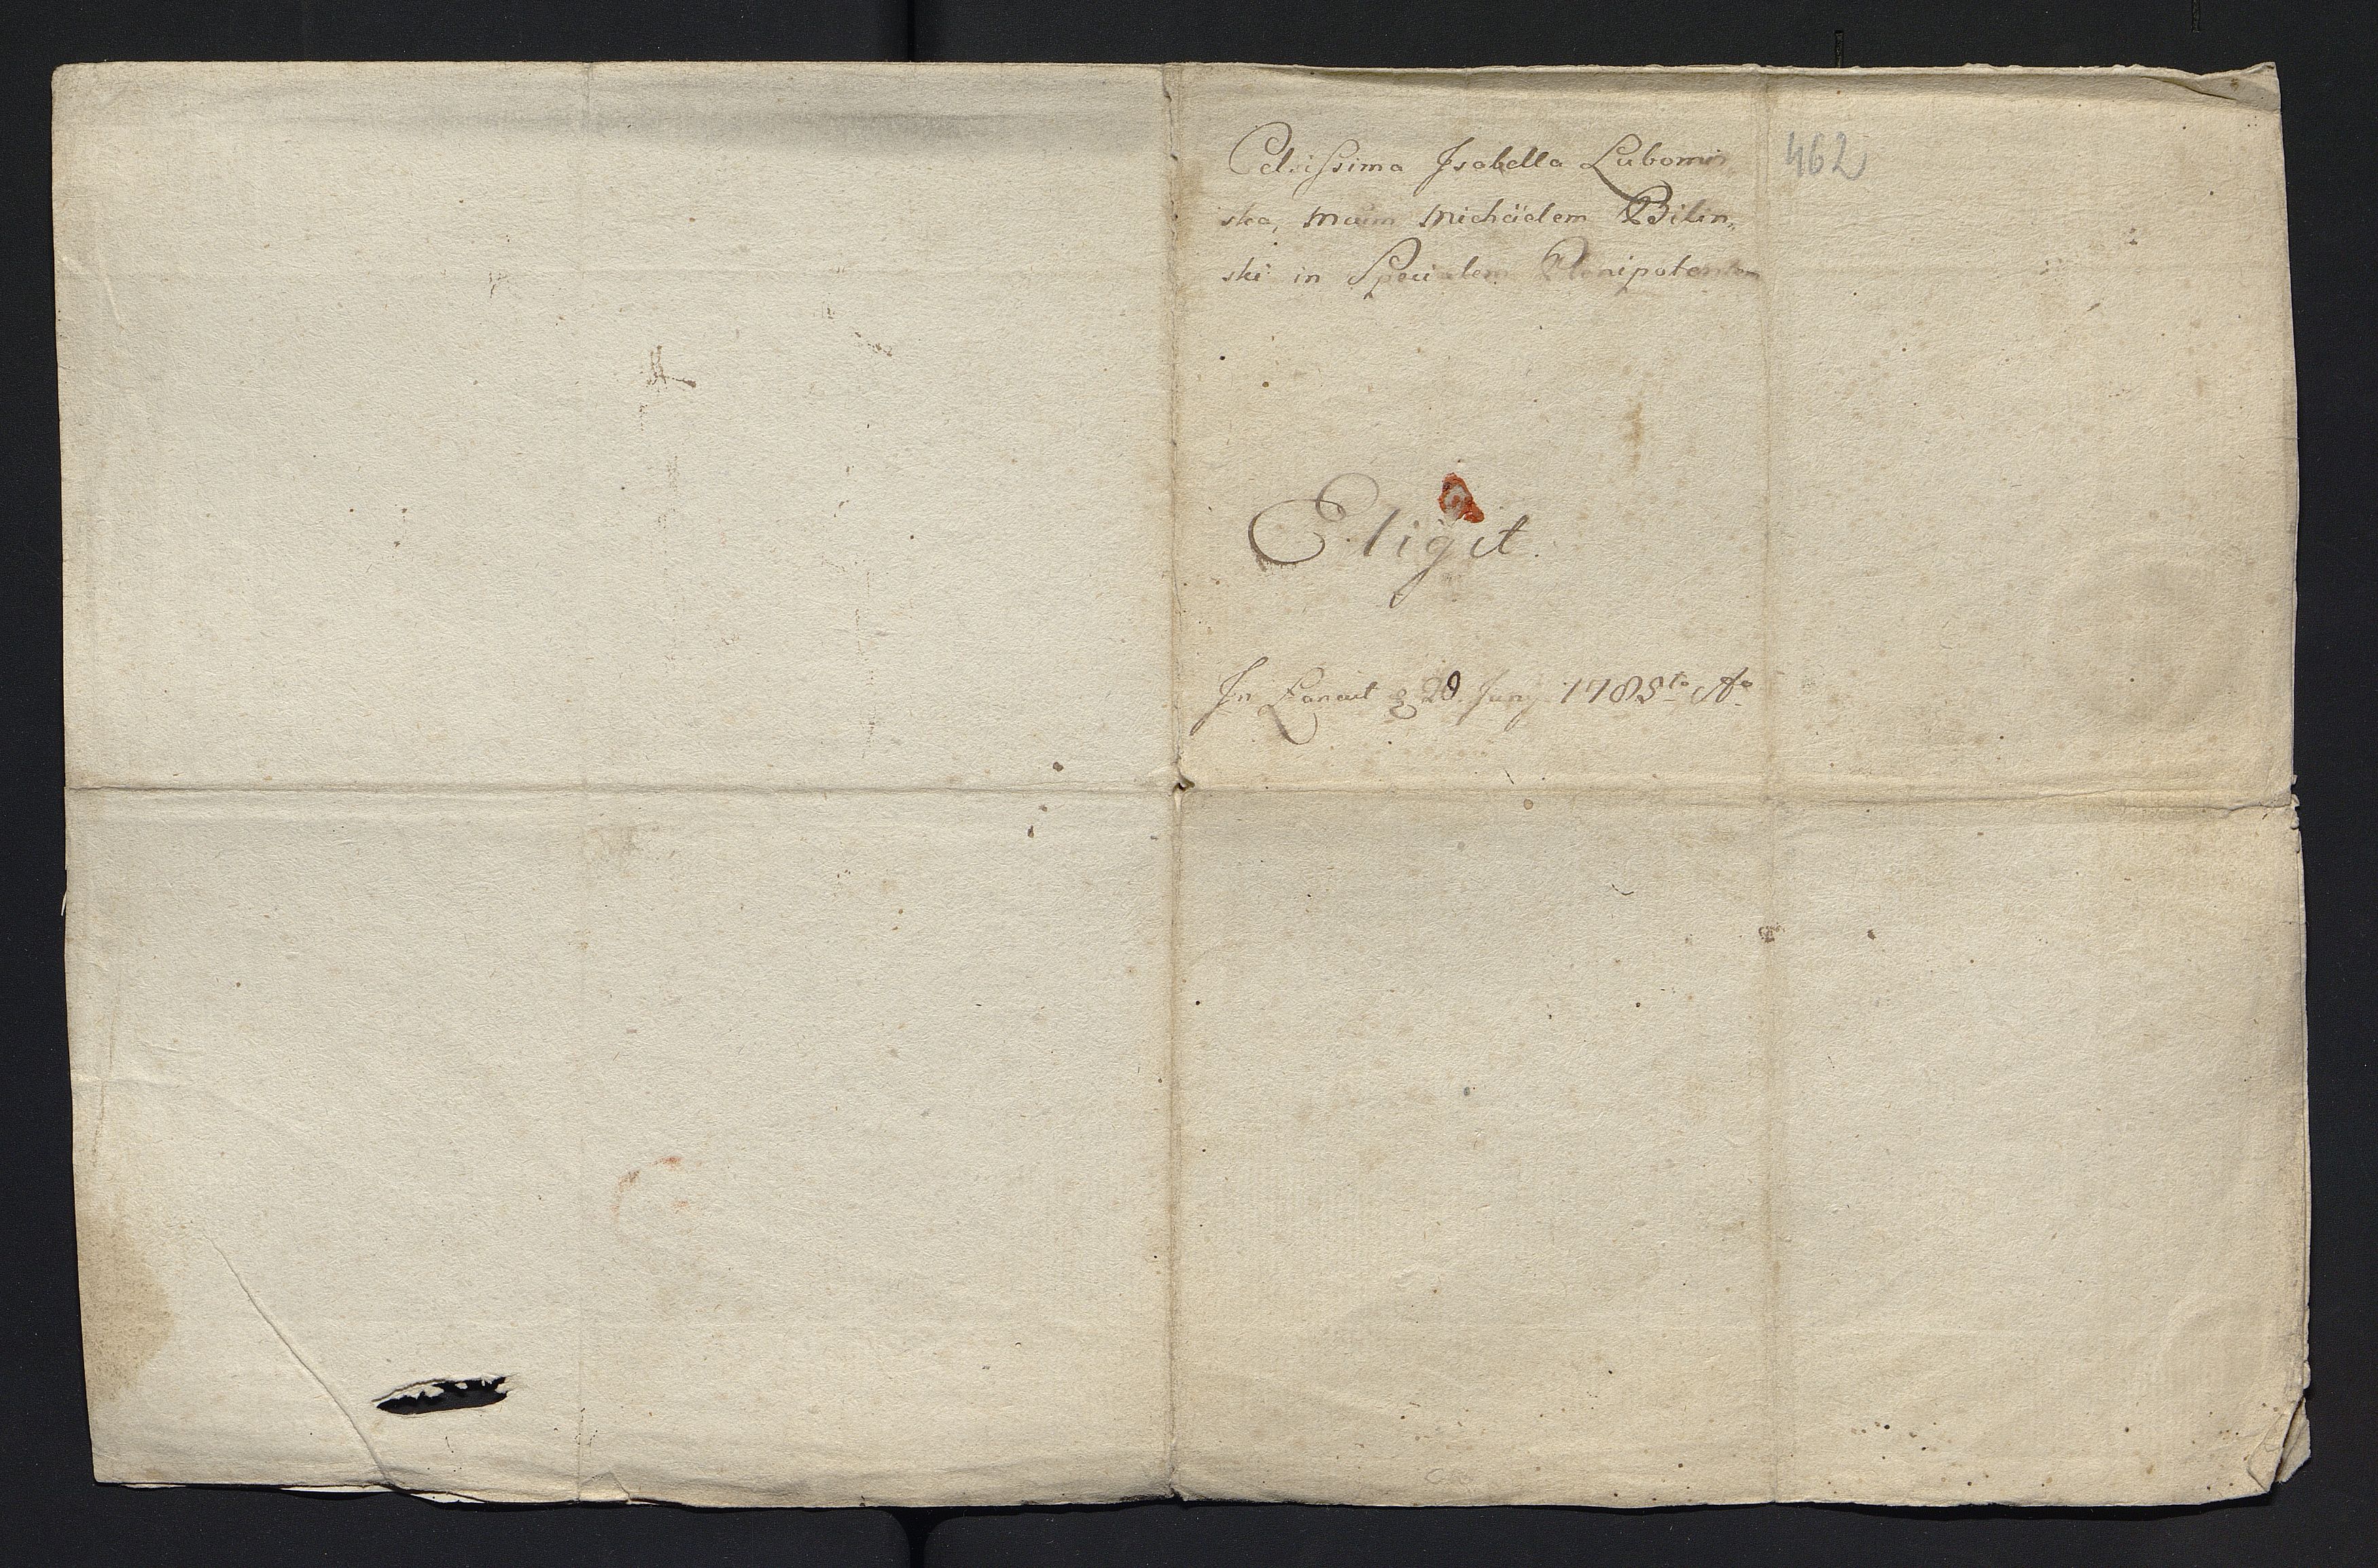 Celsissima Isabella Lubomir
ska, Mcum Michäelem Bilin„
ski in Specialem Plenipotentem
462
Eligit.
In Łancut 28. Junÿ 1785to Ao